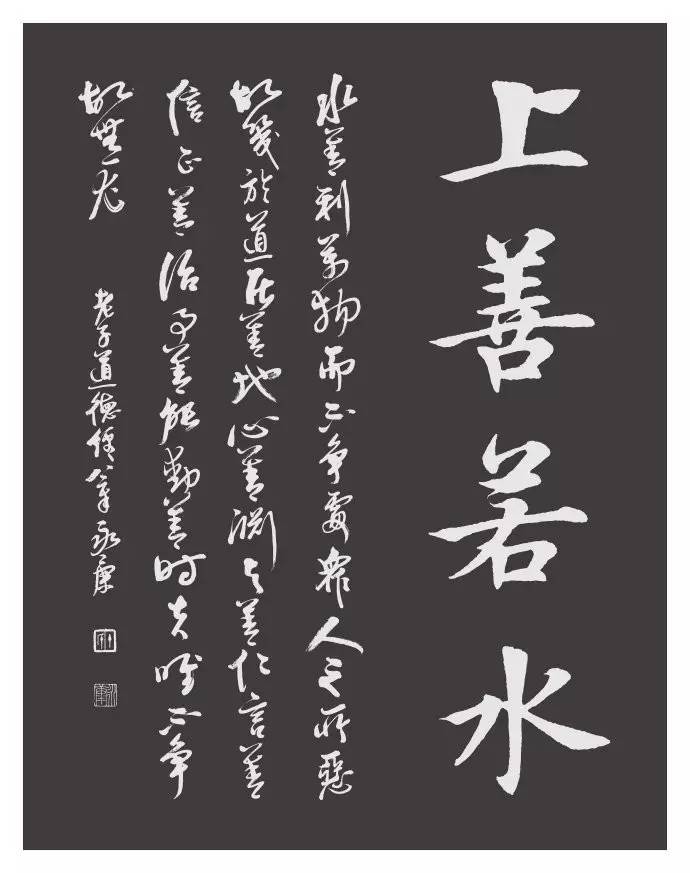 上善若水
水善利萬物而不争處衆人之所惡
故幾於道居善地心善淵與善仁言善
信正善治事善能動善時夫唯不争
故無尤
老子道德經八章永康